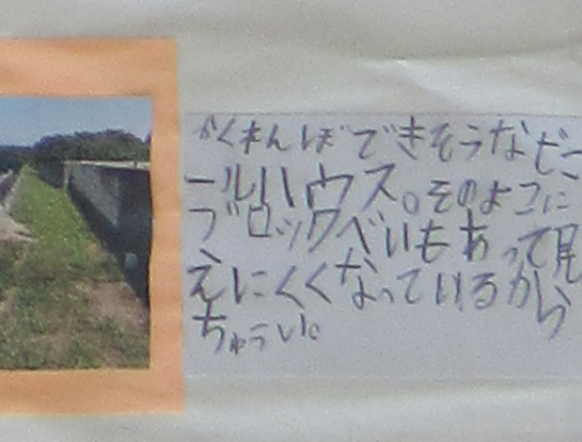 かくれんぼできそうなビニ
ールハウス。そのよこに
ブロックべいもあって見
えにくくなっているから
ちゅうい。